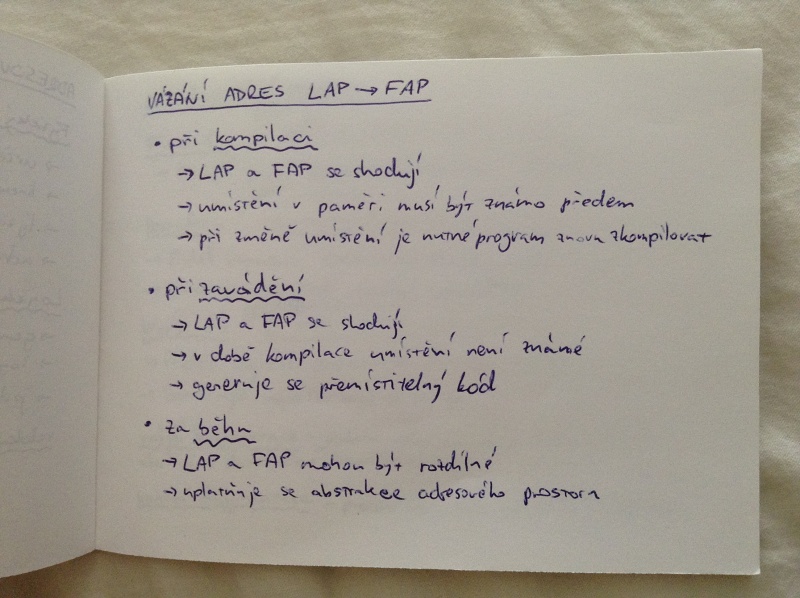 VÁZÁNÍ ADRES LAP → FAP
• při kompilaci
→ LAP a FAP se shodují
→ umístění v paměti musí být známo předem
→ při změně umístění je nutné program znovu zkompilovat
• při zavádění
→ LAP a FAP se shodují
→ v době kompilace umístění není známé
→ generuje se přemístitelný kód
• za běhu
→ LAP a FAP mohou být rozdílné
→ uplatňuje se abstrakce adresového prostoru